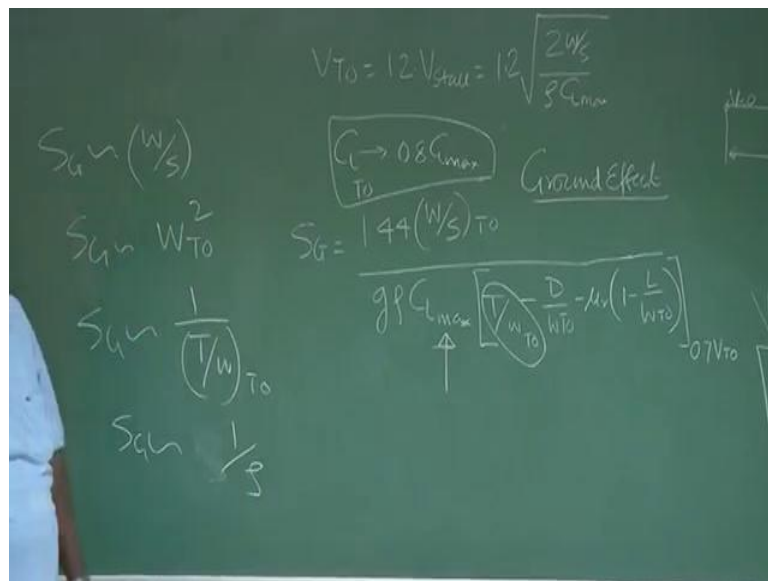 V_TO = 1.2 V_stall = 1.2 √(2 W/S / ρ C_Lmax)
S_G ~ (W/S)
C_L_TO → 0.8 C_Lmax
Ground Effect
S_G ~ W_TO^2
S_G = 1.44 (W/S)_TO / g ρ C_Lmax [T/W_TO - D/W_TO - μ_r (1 - L/W_TO)]_0.7 V_TO
S_G ~ 1 / (T/W)_TO
S_G ~ 1/ρ